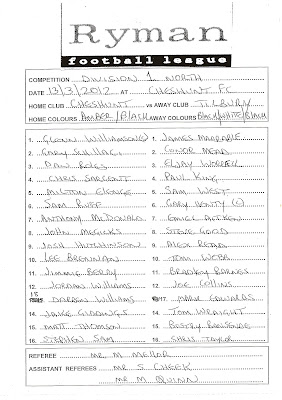 Ryman
football league
COMPETITION DIVISION 1 NORTH
DATE 13/3/2012 AT CHESHUNT FC
HOME CLUB CHESHUNT vs AWAY CLUB TILBURY
HOME COLOURS AMBER/BLACK AWAY COLOURS BLACK/WHITE/BLACK
1. GLENN WILLIAMSON 1. JAMES
2. GARY 2. CONOR MEAD
3. DAN 3. ELJAY WORRELL
4. CHRIS SARGENT 4. PAUL KING
5. MILTON 5. SAM WEST
6. SAM RUFF 6. GARY HENTY (C)
7. ANTHONY McDONALD 7.
8. JOHN 8. STEVE GOOD
9. JOSH HUTCHINSON 9. ALEX READ
10. LEE BRENNAN 10. TOM WEBB
11. JIMMIE BERRY 11. BRADLEY BARNES
12. JORDAN WILLIAMS 12. JOE COLLINS
15 DARREN WILLIAMS 17. MARK EDWARDS
14. JAKE GIDDINGS 14. TOM WRAIGHT
15. MATT THOMSON 15.
16. STEPHEN SAM 16. CHRIS TAYLOR
REFEREE MR. M MELLOR
ASSISTANT REFEREES MR S CHEEK
MR M QUINN